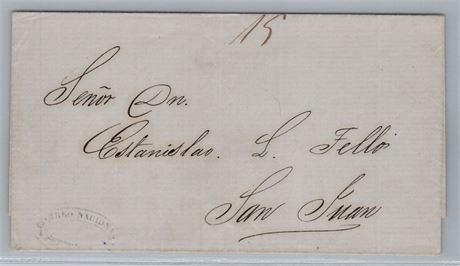 15
Señor Dn.
Estanislao. L. Fello
San Juan
NACIONAL